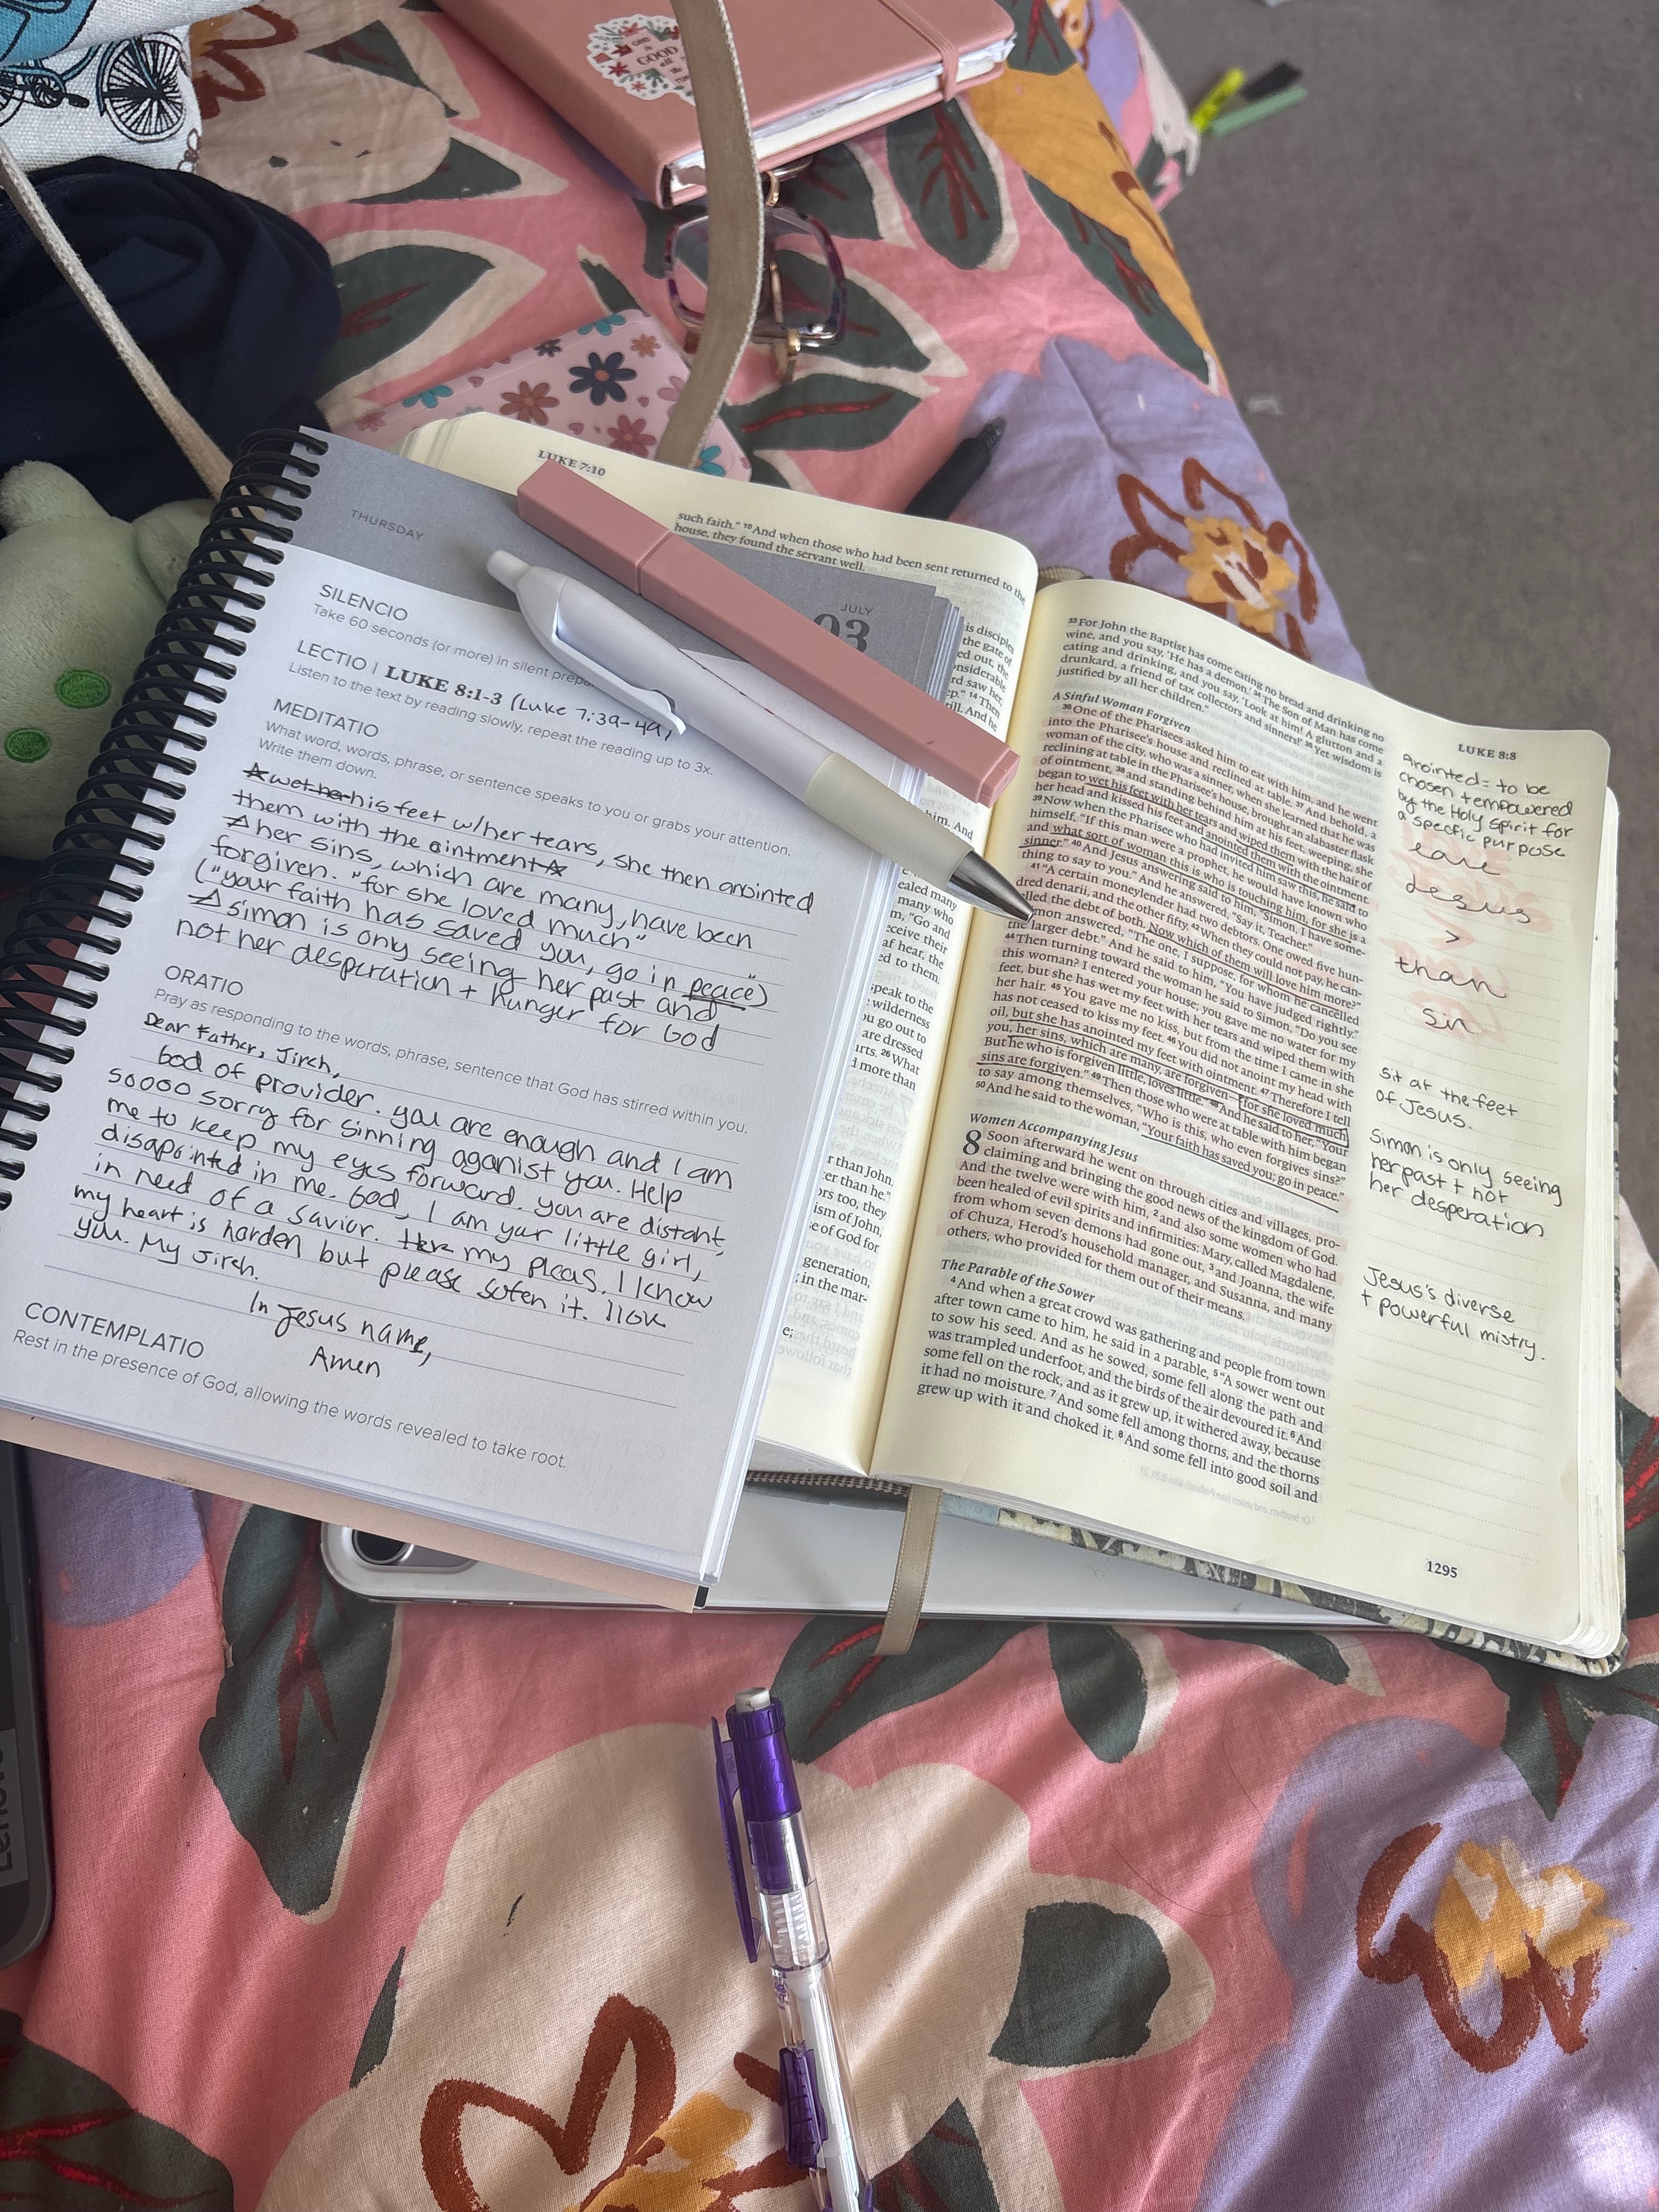 GOD is GOOD all the TIME
LUKE 7:10
such faith." 10 And when those who had been sent returned to the
house, they found the servant well.
THURSDAY
JULY
03
SILENCIO
Take 60 seconds (or more) in silent
LECTIO | LUKE 8:1-3 (Luke 7:39-49)
Listen to the text by reading slowly, repeat the reading up to 3x.
MEDITATIO
What word, words, phrase, or sentence speaks to you or grabs your attention.
Write them down.
wet her his feet w/her tears, she then anointed
them with the ointment
her sins, which are many, have been
forgiven. "for she loved much"
("your faith has saved you, go in peace")
simon is only seeing her past and
not her despiration + hunger for God
ORATIO
Pray as responding to the words, phrase, sentence that God has stirred within you.
Dear Father, Jireh,
God of provider. you are enough and I am
soooo sorry for sinning aganist you. Help
me to keep my eyes forward. you are distant,
disapointed in me. God, I am your little girl,
in need of a savior. my pleas. I know
my heart is harden but please soten it. I lok
you. My Jireh.
In Jesus name,
Amen
CONTEMPLATIO
Rest in the presence of God, allowing the words revealed to take root.
is disciples
the gate of
ed out, the
onsiderable
rd saw her,
ep." 14 Then
till. And he
him. And
ealed many
many who
m, "Go and
eceive their
af hear, the
ed to them.
speak to the
wilderness
ou go out to
are dressed
urts. 26 What
d more than
r than John.
ter than he."
ors too, they
ism of John,
se of God for
generation,
in the mar-
e;
33 For John the Baptist has come eating no bread and drinking no
wine, and you say, 'He has a demon.' 34 The Son of Man has come
eating and drinking, and you say, 'Look at him! A glutton and a
drunkard, a friend of tax collectors and sinners!' 35 Yet wisdom is
justified by all her children."
A Sinful Woman Forgiven
36 One of the Pharisees asked him to eat with him, and he went
into the Pharisee's house and reclined at table. 37 And behold, a
woman of the city, who was a sinner, when she learned that he was
reclining at table in the Pharisee's house, brought an alabaster flask
of ointment, 38 and standing behind him at his feet, weeping, she
began to wet his feet with her tears and wiped them with the hair of
her head and kissed his feet and anointed them with the ointment.
39 Now when the Pharisee who had invited him saw this, he said to
himself, "If this man were a prophet, he would have known who
and what sort of woman this is who is touching him, for she is a
sinner." 40 And Jesus answering said to him, "Simon, I have some-
thing to say to you." And he answered, "Say it, Teacher."
41 "A certain moneylender had two debtors. One owed five hun-
dred denarii, and the other fifty. 42 When they could not pay, he can-
celled the debt of both. Now which of them will love him more?"
mon answered, "The one, I suppose, for whom he cancelled
the larger debt." And he said to him, "You have judged rightly."
44 Then turning toward the woman he said to Simon, "Do you see
this woman? I entered your house; you gave me no water for my
feet, but she has wet my feet with her tears and wiped them with
her hair. 45 You gave me no kiss, but from the time I came in she
has not ceased to kiss my feet. 46 You did not anoint my head with
oil, but she has anointed my feet with ointment. 47 Therefore I tell
you, her sins, which are many, are forgiven—for she loved much.
But he who is forgiven little, loves little." 48 And he said to her, "Your
sins are forgiven." 49 Then those who were at table with him began
to say among themselves, "Who is this, who even forgives sins?"
50 And he said to the woman, "Your faith has saved you; go in peace."
Women Accompanying Jesus
8 Soon afterward he went on through cities and villages, pro-
claiming and bringing the good news of the kingdom of God.
And the twelve were with him, 2 and also some women who had
been healed of evil spirits and infirmities: Mary, called Magdalene,
from whom seven demons had gone out, 3 and Joanna, the wife
of Chuza, Herod's household manager, and Susanna, and many
others, who provided for them out of their means.
The Parable of the Sower
4 And when a great crowd was gathering and people from town
after town came to him, he said in a parable, 5 "A sower went out
to sow his seed. And as he sowed, some fell along the path and
was trampled underfoot, and the birds of the air devoured it. 6 And
some fell on the rock, and as it grew up, it withered away, because
it had no moisture. 7 And some fell among thorns, and the thorns
grew up with it and choked it. 8 And some fell into good soil and
LUKE 8:8
Anointed = to be
chosen + empowered
by the Holy Spirit for
a specfic purpose
Jesus
>
than
Sin
sit at the feet
of Jesus.
Simon is only seeing
her past + not
her desperation
Jesus's diverse
+ powerful mistry.
1295
Lenovo